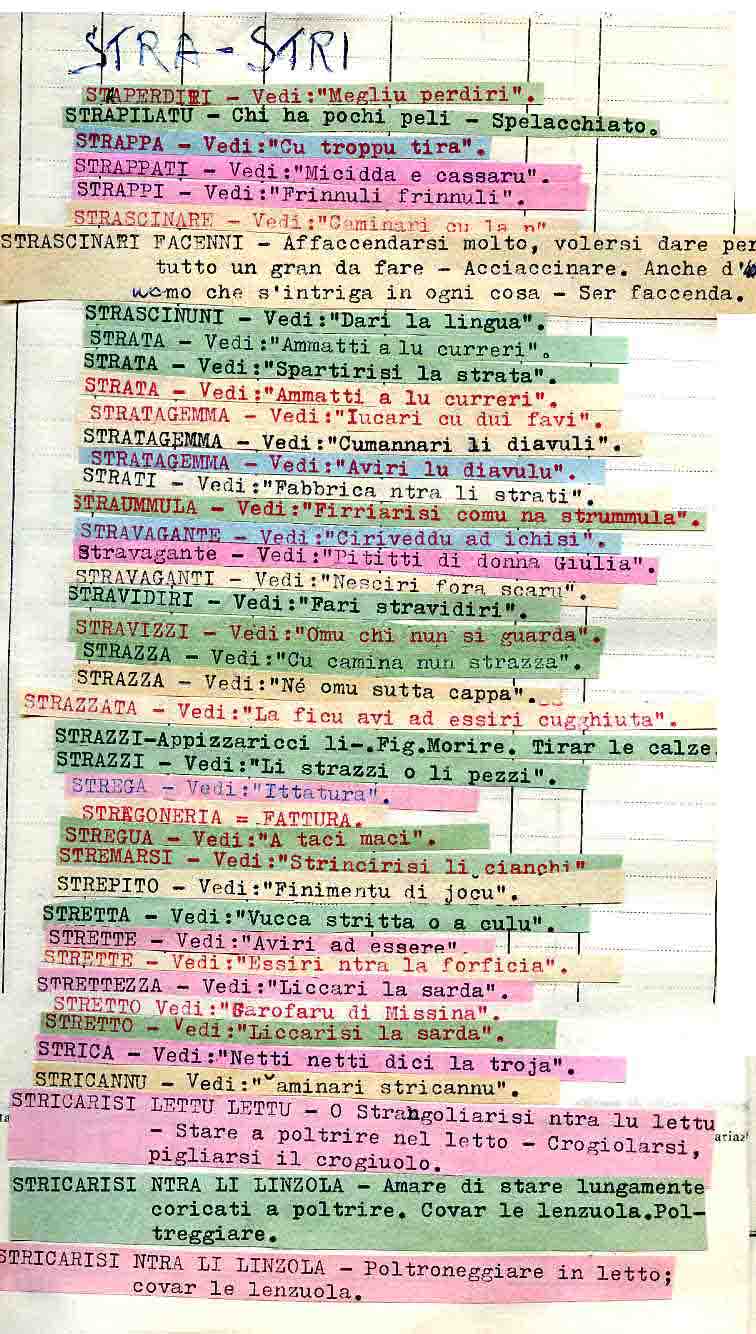 STRA-STRI
STAPERDIRI - Vedi:"Megliu perdiri".
STRAPILATU - Chi ha pochi peli - Spelacchiato.
STRAPPA - Vedi:"Cu troppu tira".
STRAPPATI - Vedi:"Micidda e cassaru".
STRAPPI - Vedi:"Frinnuli frinnuli".
STRASCINARE - Vedi:"Caminari cu la n"
STRASCINARI FACENNI - Affaccendarsi molto, volersi dare per
tutto un gran da fare - Acciaccinare. Anche d'
uomo che s'intriga in ogni cosa - Ser faccenda.
STRASCINUNI - Vedi:"Dari la lingua".
STRATA - Vedi:"Ammatti a lu curreri".
STRATA - Vedi:"Spartirisi la strata".
STRATA - Vedi:"Ammatti a lu curreri".
STRATAGEMMA - Vedi:"Iucari cu dui favi".
STRATAGEMMA - Vedi:"Cumannari li diavuli".
STRATAGEMMA - Vedi:"Aviri lu diavulu".
STRATI - Vedi:"Fabbrica ntra li strati".
STRAUMMULA - Vedi:"Firriarisi comu na strummula".
STRAVAGANTE - Vedi:"Ciriveddu ad ichisi".
Stravagante - Vedi:"Pititti di donna Giulia".
STRAVAGANTI - Vedi:"Nesciri fora scaru".
STRAVIDIRI - Vedi:"Fari stravidiri".
STRAVIZZI - Vedi:"Omu chi nun si guarda".
STRAZZA - Vedi:"Cu camina nun strazza".
STRAZZA - Vedi:"Né omu sutta cappa".
STRAZZATA - Vedi:"La ficu avi ad essiri cugghiuta".
STRAZZI-Appizzaricci li-.Fig.Morire. Tirar le calze.
STRAZZI - Vedi:"Li strazzi o li pezzi".
STREGA - Vedi:"Ittatura".
STREGONERIA = FATTURA.
STREGUA - Vedi:"A taci maci".
STREMARSI - Vedi:"Strincirisi li cianchi"
STREPITO - Vedi:"Finimentu di jocu".
STRETTA - Vedi:"Vucca stritta o a culu".
STRETTE - Vedi:"Aviri ad essere".
STRETTE - Vedi:"Essiri ntra la forficia".
STRETTEZZA - Vedi:"Liccari la sarda".
STRETTO Vedi:"Garofaru di Missina".
STRETTO - Vedi:"Liccarisi la sarda".
STRICA - Vedi:"Netti netti dici la troja".
STRICANNU - Vedi:"Caminari stricannu".
STRICARISI LETTU LETTU - O Strangoliarisi ntra lu lettu
- Stare a poltrire nel letto - Crogiolarsi,
pigliarsi il crogiuolo.
STRICARISI NTRA LI LINZOLA - Amare di stare lungamente
coricati a poltrire. Covar le lenzuola.Pol-
treggiare.
STRICARISI NTRA LI LINZOLA - Poltroneggiare in letto;
covar le lenzuola.